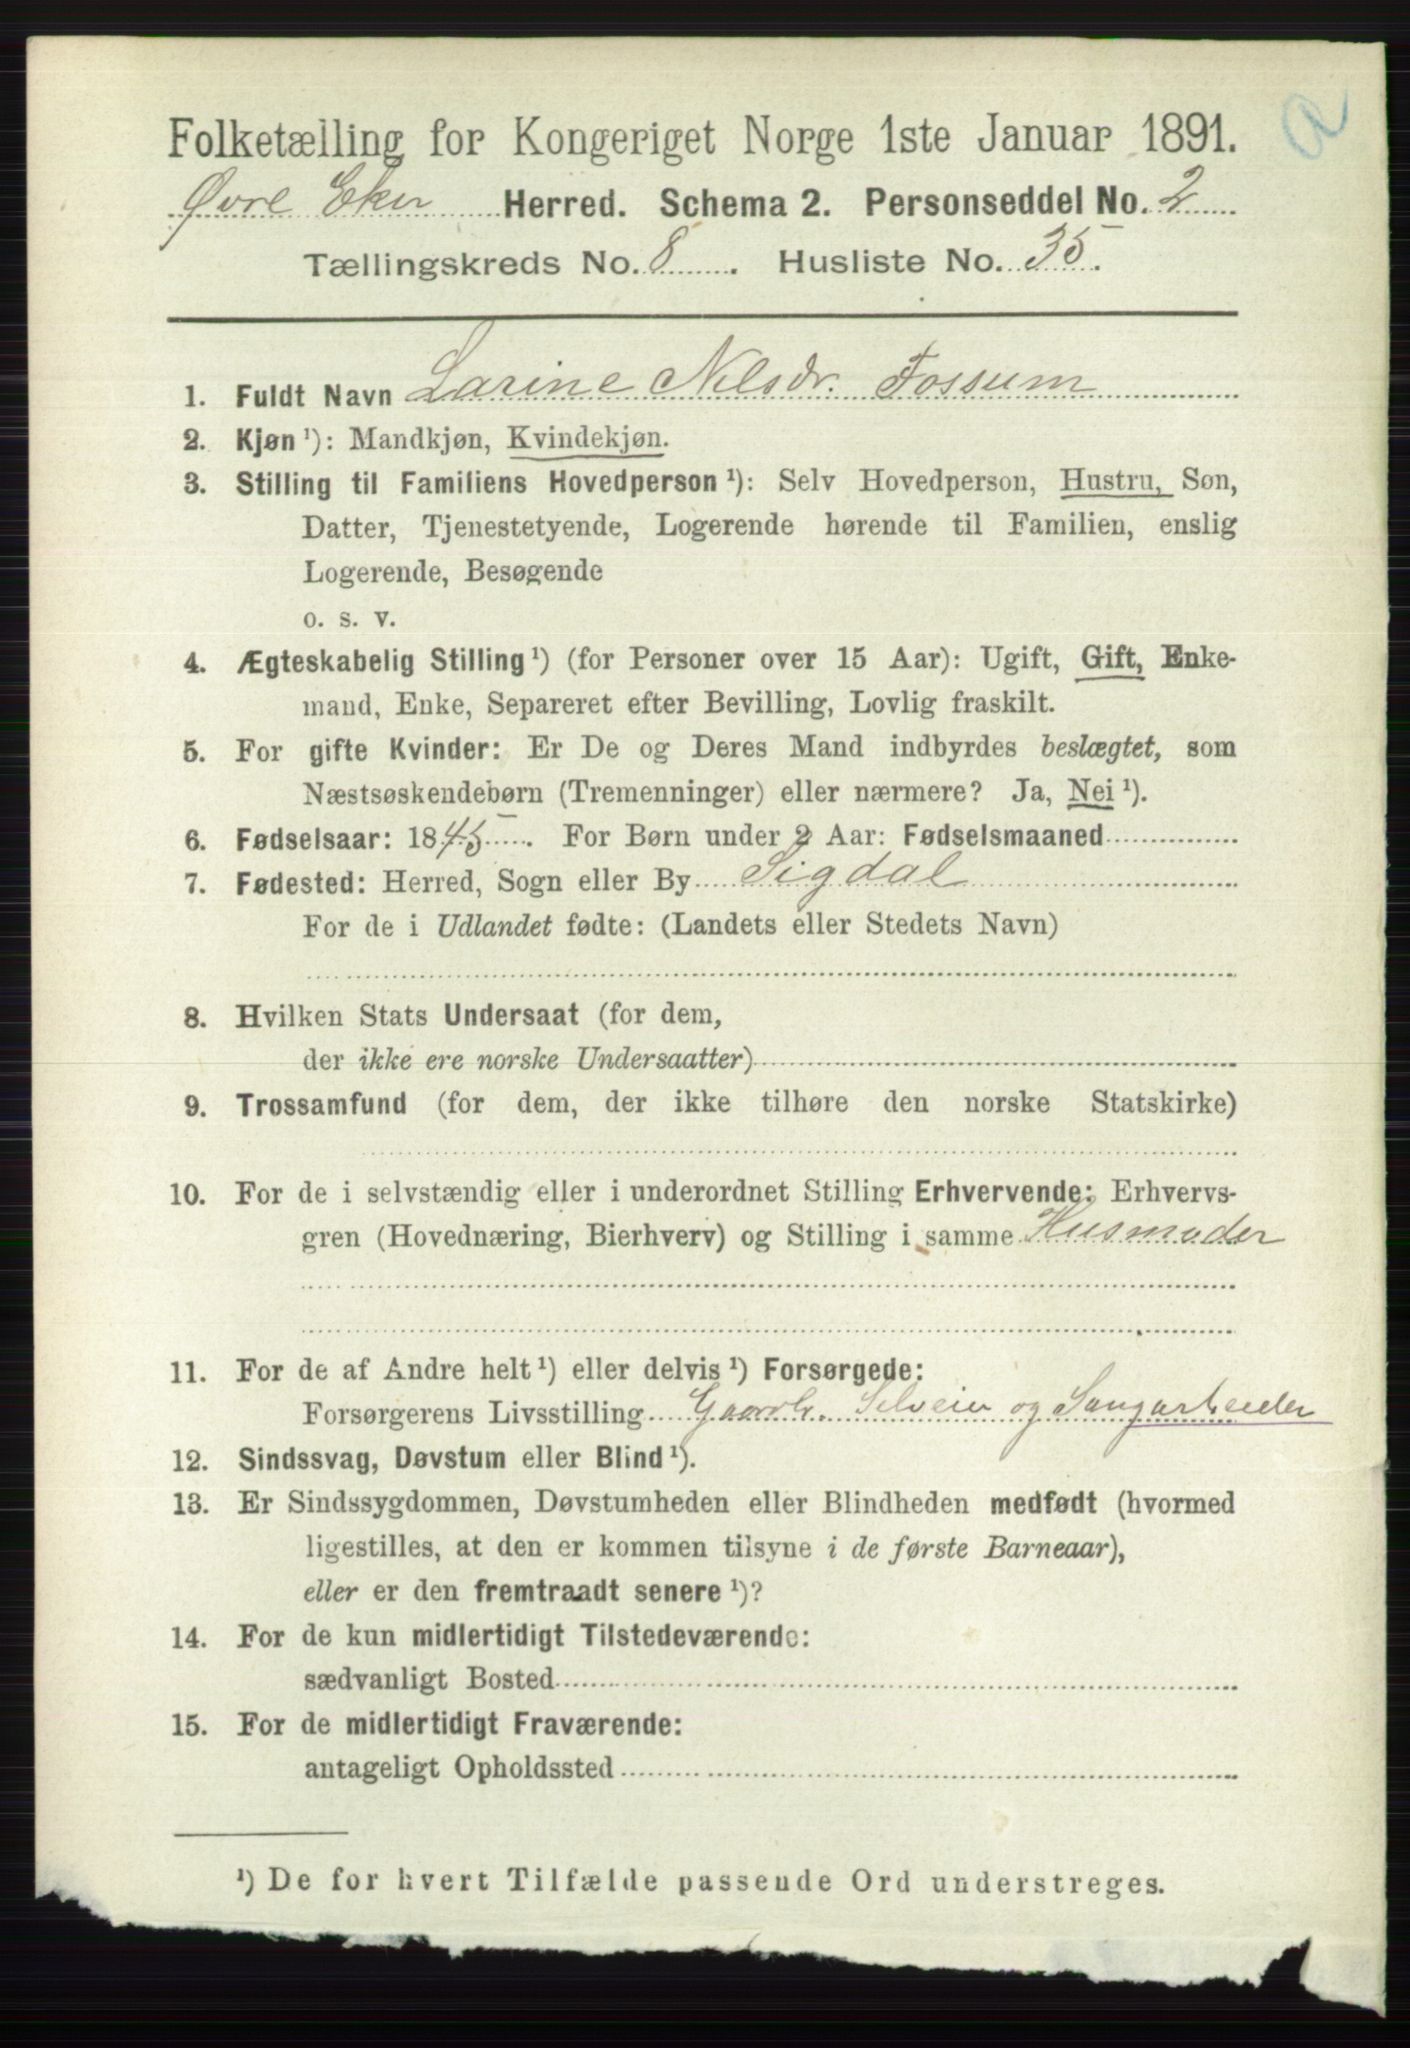 Folketælling for Kongeriget Norge 1ste Januar 1891.
Øvre Eker Herred. Schema 2. Personseddel No. 2
Tællingskreds No. 8. Husliste No. 35.
1. Fuldt Navn Larine Nilsdr. Fossum
2. Kjøn ¹): Mandkjøn, Kvindekjøn.
3. Stilling til Familiens Hovedperson ¹): Selv Hovedperson, Hustru, Søn,
Datter, Tjenestetyende, Logerende hørende til Familien, enslig
Logerende, Besøgende
o. s. v.
4. Ægteskabelig Stilling ¹) (for Personer over 15 Aar): Ugift, Gift, Enke-
mand, Enke, Separeret efter Bevilling, Lovlig fraskilt.
5. For gifte Kvinder: Er De og Deres Mand indbyrdes beslægtet, som
Næstsøskendebørn (Tremenninger) eller nærmere? Ja, Nei ¹).
6. Fødselsaar: 1845. For Børn under 2 Aar: Fødselsmaaned
7. Fødested: Herred, Sogn eller By Sigdal
For de i Udlandet fødte: (Landets eller Stedets Navn)
8. Hvilken Stats Undersaat (for dem,
der ikke ere norske Undersaatter)
9. Trossamfund (for dem, der ikke tilhøre den norske Statskirke)
10. For de i selvstændig eller i underordnet Stilling Erhvervende: Erhvervs-
gren (Hovednæring, Bierhverv) og Stilling i samme Husmoder
11. For de af Andre helt ¹) eller delvis ¹) Forsørgede:
Forsørgerens Livsstilling Gaardbr. Selveier og Saugarbeider
12. Sindssvag, Døvstum eller Blind ¹).
13. Er Sindssygdommen, Døvstumheden eller Blindheden medfødt (hvormed
ligestilles, at den er kommen tilsyne i de første Barneaar),
eller er den fremtraadt senere ¹)?
14. For de kun midlertidigt Tilstedeværende:
sædvanligt Bosted
15. For de midlertidigt Fraværende:
antageligt Opholdssted
¹) De for hvert Tilfælde passende Ord understreges.